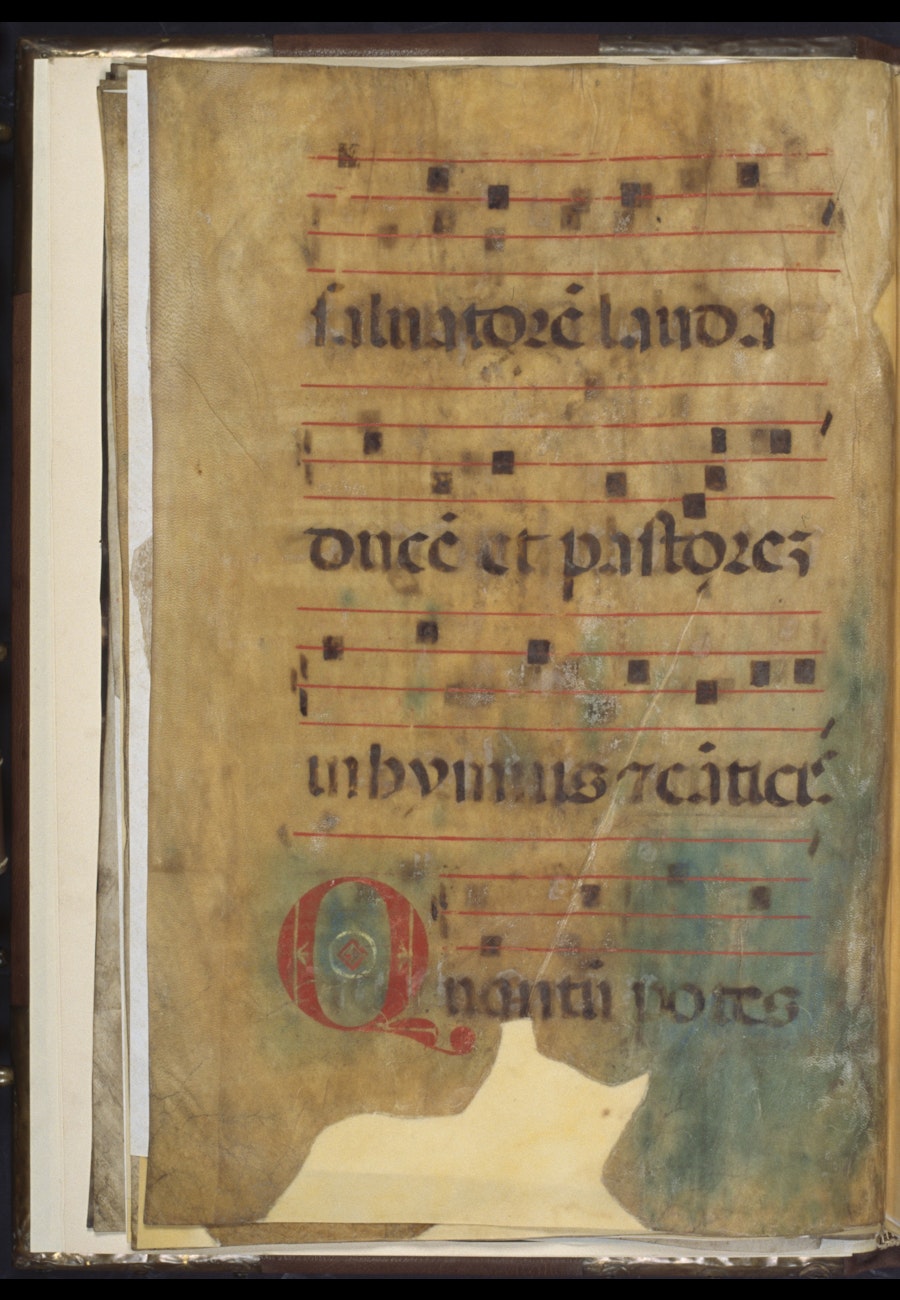 salvatorē lauda
ducē et pastorēȝ
in hymnis ⁊ cāticꝭ.
Quantū potes